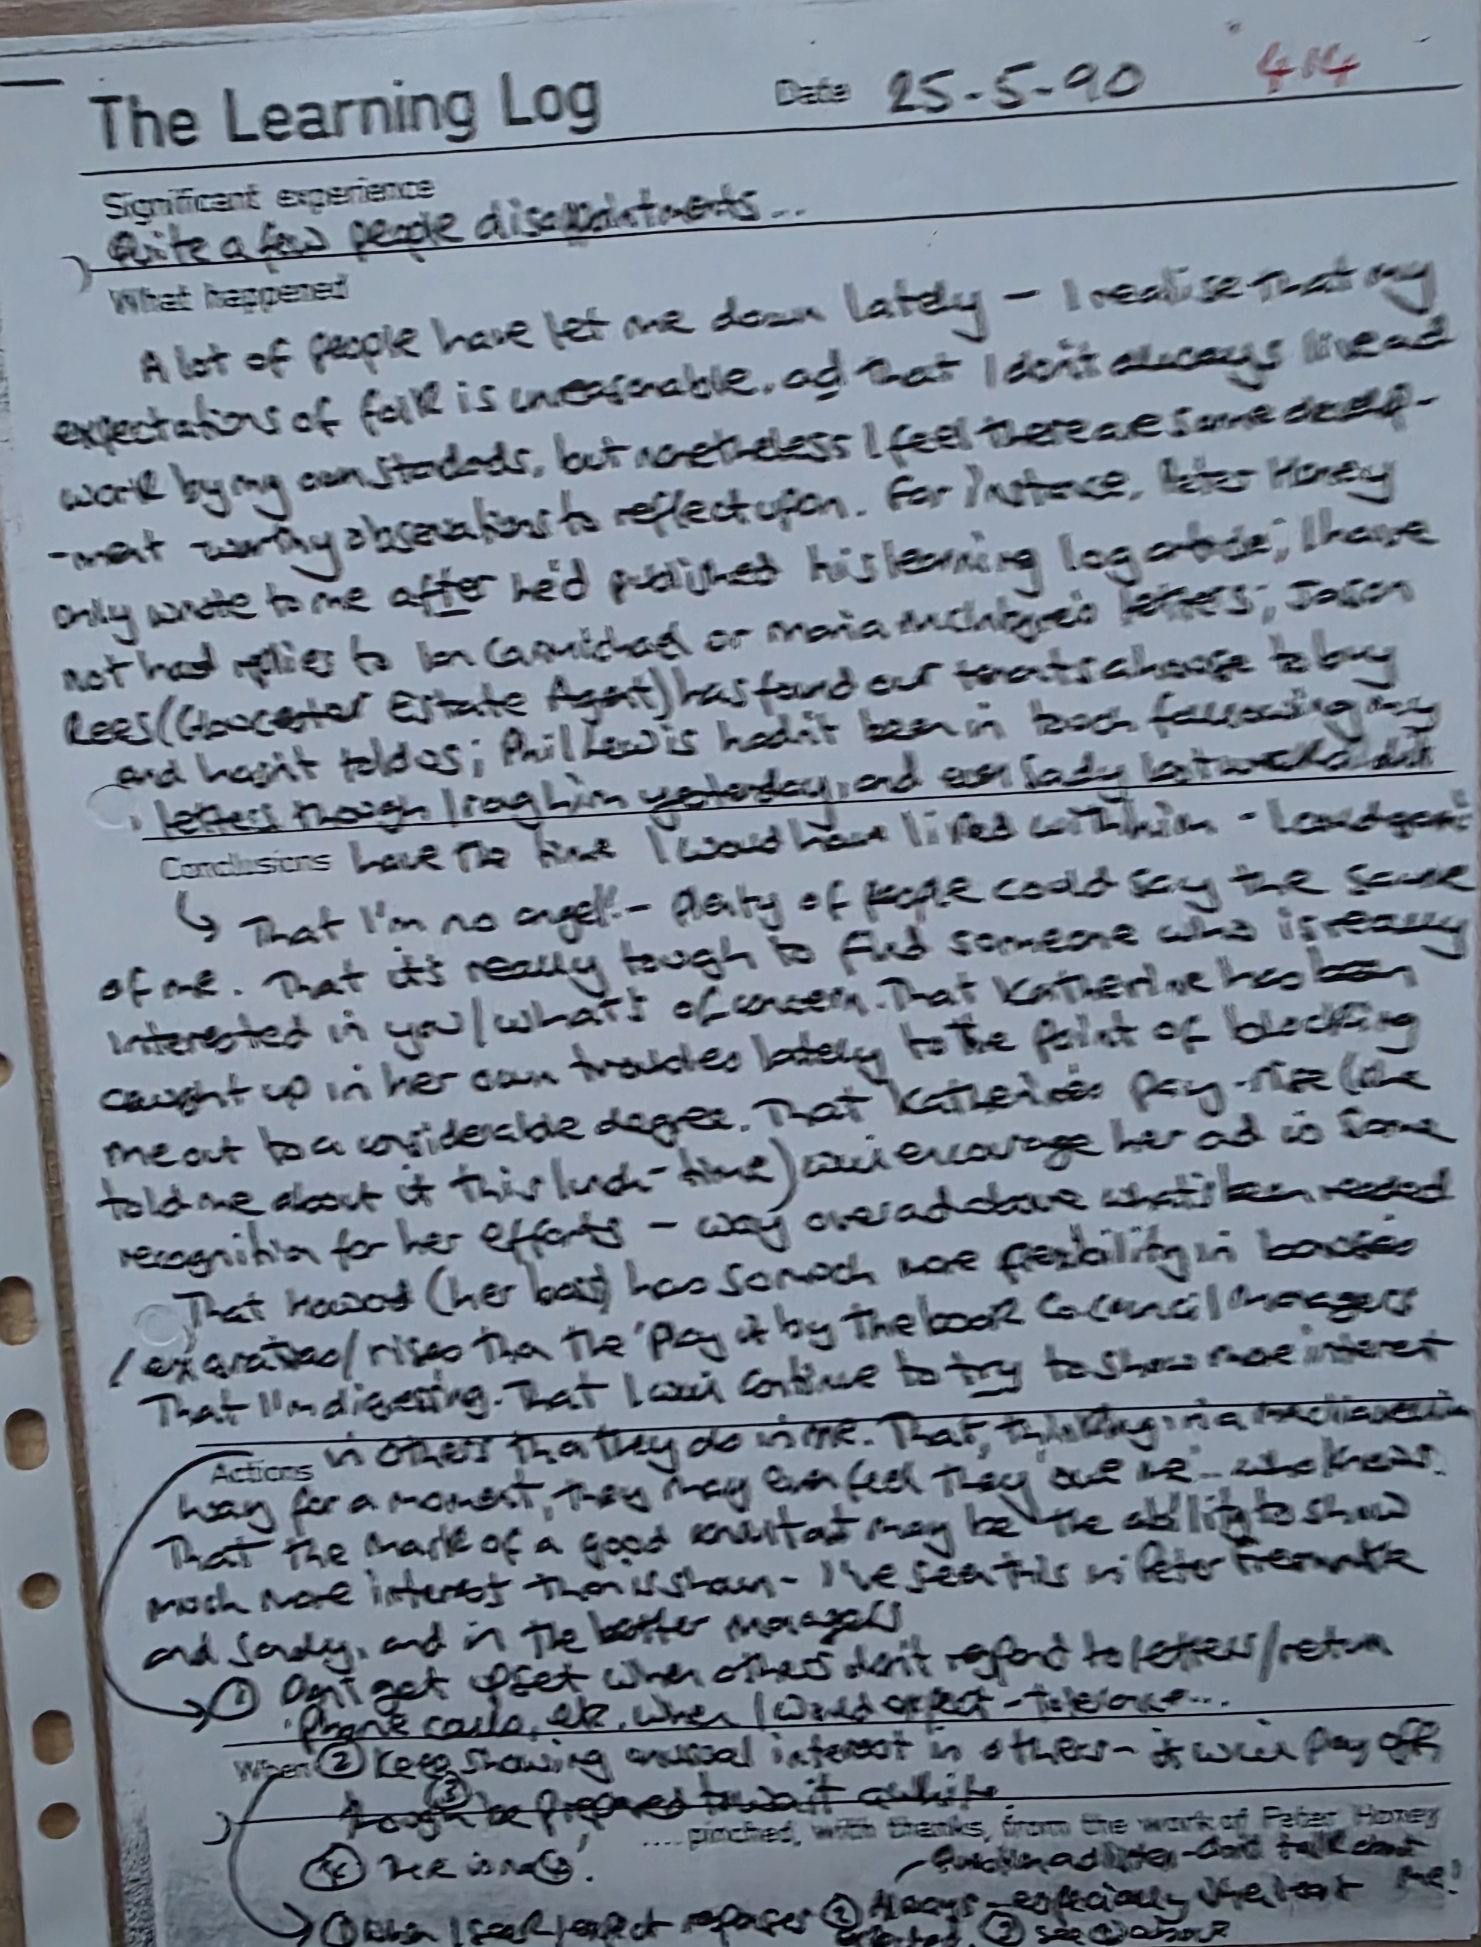 The Learning Log Date 25-5-90 414
Significant experience
Quite a few people disappointments...
What happened
A lot of people have let me down lately - I realise that my
expectations of folk is unreasonable, ad that I don't always live ad
work by my own stadads, but nonetheless I feel there are some develop-
-ment worthy observations to reflect upon. For instance, Peter Honey
only wrote to me after he'd published his learning log article; I have
not had replies to Ian Carmichael or Maria McIntyre's letters; Jason
Rees (Gloucester Estate Agent) has found our tenants a house to buy
and hasn't told us; Phil Lewis hadn't been in touch following my
letters though I rag him yesterday, and even Sady last week didn't
Conclusions have the time I would have liked with him -
↳ That I'm no angel! - Plenty of people could say the same
of me. That it's really tough to find someone who is really
interested in you/what's of concern. That Katherine has been
caught up in her own troubles lately to the point of blocking
me out to a considerable degree. That Katherine's pay-rise (she
told me about it this lunch-time) will encourage her ad is some
recognition for her efforts - way over ad above what's been needed
That Howard (her boss) has so much more flexibility in bonuses
/ex gratias/rises than the 'Pay it by the book' Council managers
That I'm digressing. That I will continue to try to show more interest
Actions in others tha they do in me. That, thinking in a machiavellian
way for a moment, they may even feel they 'owe me' - who knows.
That the mark of a good consultant may be the ability to show
much more interest than is shown - I've seen this in Peter
and Sandy, and in the better managers
① Don't get upset when others don't respond to letters/return
phone calls, etc. when I would expect - tolerance...
When ② Keep showing unusual interest in others - it will pay off
③ though be prepared to wait awhile.
.... pinched, with thanks, from the work of Peter Honey
④ There is no ④! - don't talk about
① When I seek/expect ② Always - especially the least me!
③ see ① above